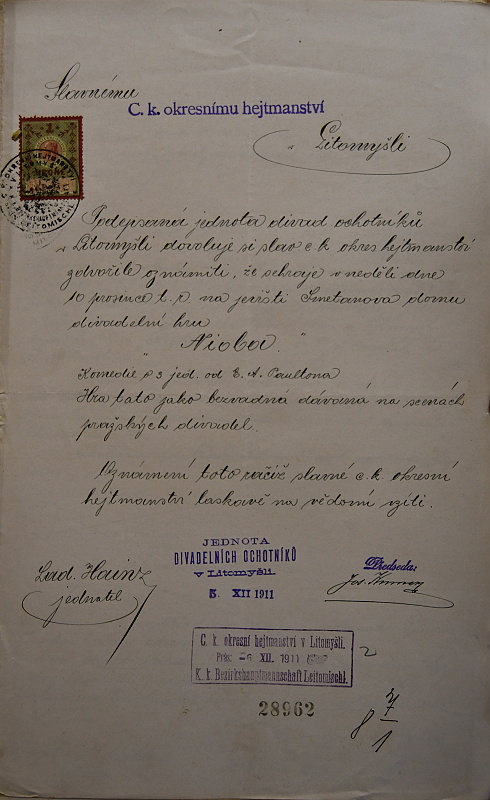 Slavnému
C. k. okresnímu hejtmanství
v Litomyšli
C. K. OKRESNÍ HEJTMANSTVÍ
Podepsaná jednota divad ochotníků
v Litomyšli dovoluje si slav c. k. okres hejtmanství
zdvořile oznámiti, že sehraje v neděli dne
10 prosince t. r. na jevišti Smetanova domu
divadelní hru
"Nioba."
Komedie o 3 jed. od E. A. Paultona
Hra tato jako bezvadná dávaná na scenách
pražských divadel.
Oznámení toto račiž slavné c. k. okresní
hejtmanství laskavě na vědomí vzíti.
JEDNOTA
DIVADELNÍCH OCHOTNÍKŮ
v Litomyšli.
5. XII 1911
Lad. Hainz
jednatel
Předseda:
Jos.
C. k. okresní hejtmanství v Litomyšli.
Präs: -6. XII. 1911
K. k. Bezirkshauptmannschaft Leitomischl.
28962
8 7/1